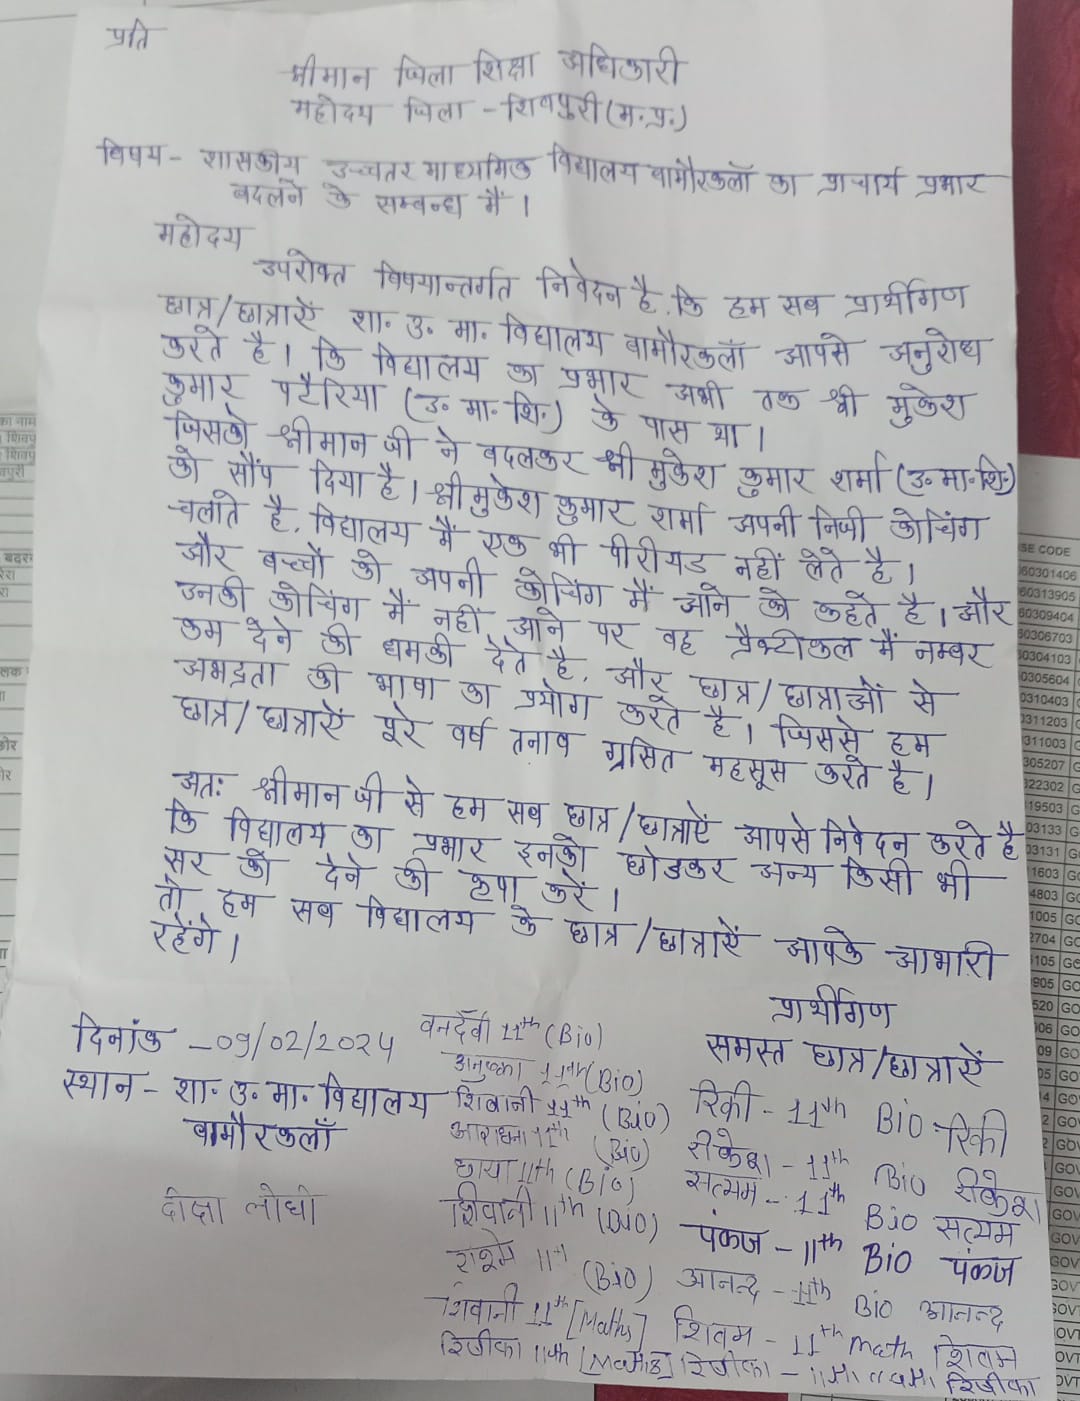 प्रति
श्रीमान जिला शिक्षा अधिकारी
महोदय जिला - शिवपुरी (म.प्र.)
विषय - शासकीय उच्चतर माध्यमिक विद्यालय बामौरकलाँ का प्राचार्य प्रभार
बदलने के सम्बन्ध में ।
महोदय
उपरोक्त विषयान्तर्गत निवेदन है. कि हम सब प्रार्थीगण
छात्र/छात्राऐं शा. उ. मा. विद्यालय बामौरकलाँ आपसे अनुरोध
करते है। कि विद्यालय का प्रभार अभी तक श्री मुकेश
कुमार पटैरिया (उ. मा. शि.) के पास था।
जिसको श्रीमान जी ने बदलकर श्री मुकेश कुमार शर्मा (उ. मा. शि.)
को सौंप दिया है। श्री मुकेश कुमार शर्मा अपनी निजी कोचिंग
चलाते है. विद्यालय में एक भी पीरीयड नहीं लेते है।
और बच्चों को अपनी कोचिंग में आने को कहते है। और
उनकी कोचिंग में नहीं आने पर वह प्रैक्टीकल में नम्बर
कम देने की धमकी देते है. और छात्र/छात्राओं से
अभद्रता की भाषा का प्रयोग करते है। जिससे हम
छात्र/छात्राऐं पूरे वर्ष तनाव ग्रसित महसूस करते है।
अतः श्रीमान जी से हम सब छात्र/छात्राऐं आपसे निवेदन करते है
कि विद्यालय का प्रभार इनको छोडकर अन्य किसी भी
सर को देने की कृपा करें।
तो हम सब विद्यालय के छात्र/छात्राऐं आपके आभारी
रहेंगे।
प्रार्थीगण
समस्त छात्र/छात्राऐं
दिनांक - 09/02/2024
स्थान - शा. उ. मा. विद्यालय
बामौरकलाँ
दीक्षा लोधी
वनदेवी 11th (Bio)
अनुष्का 11th (Bio)
शिवानी 11th (Bio)
आराधना 11th (Bio)
छाया 11th (Bio)
शिवानी 11th (Bio)
(Bio)
शिवानी 11th [Maths]
11th [Maths]
रिंकी - 11th Bio रिंकी
रीकेश - 11th Bio रीकेश
सत्यम - 11th Bio सत्यम
पंकज - 11th Bio पंकज
आनन्द - 11th Bio आनन्द
शिवम - 11th Math शिवम
SE CODE
60301406
60313905
60309404
60306703
0304103
0305604
0310403
0311203
311003
305207
322302
19503
03133
03131
1603
4803
1005
2704